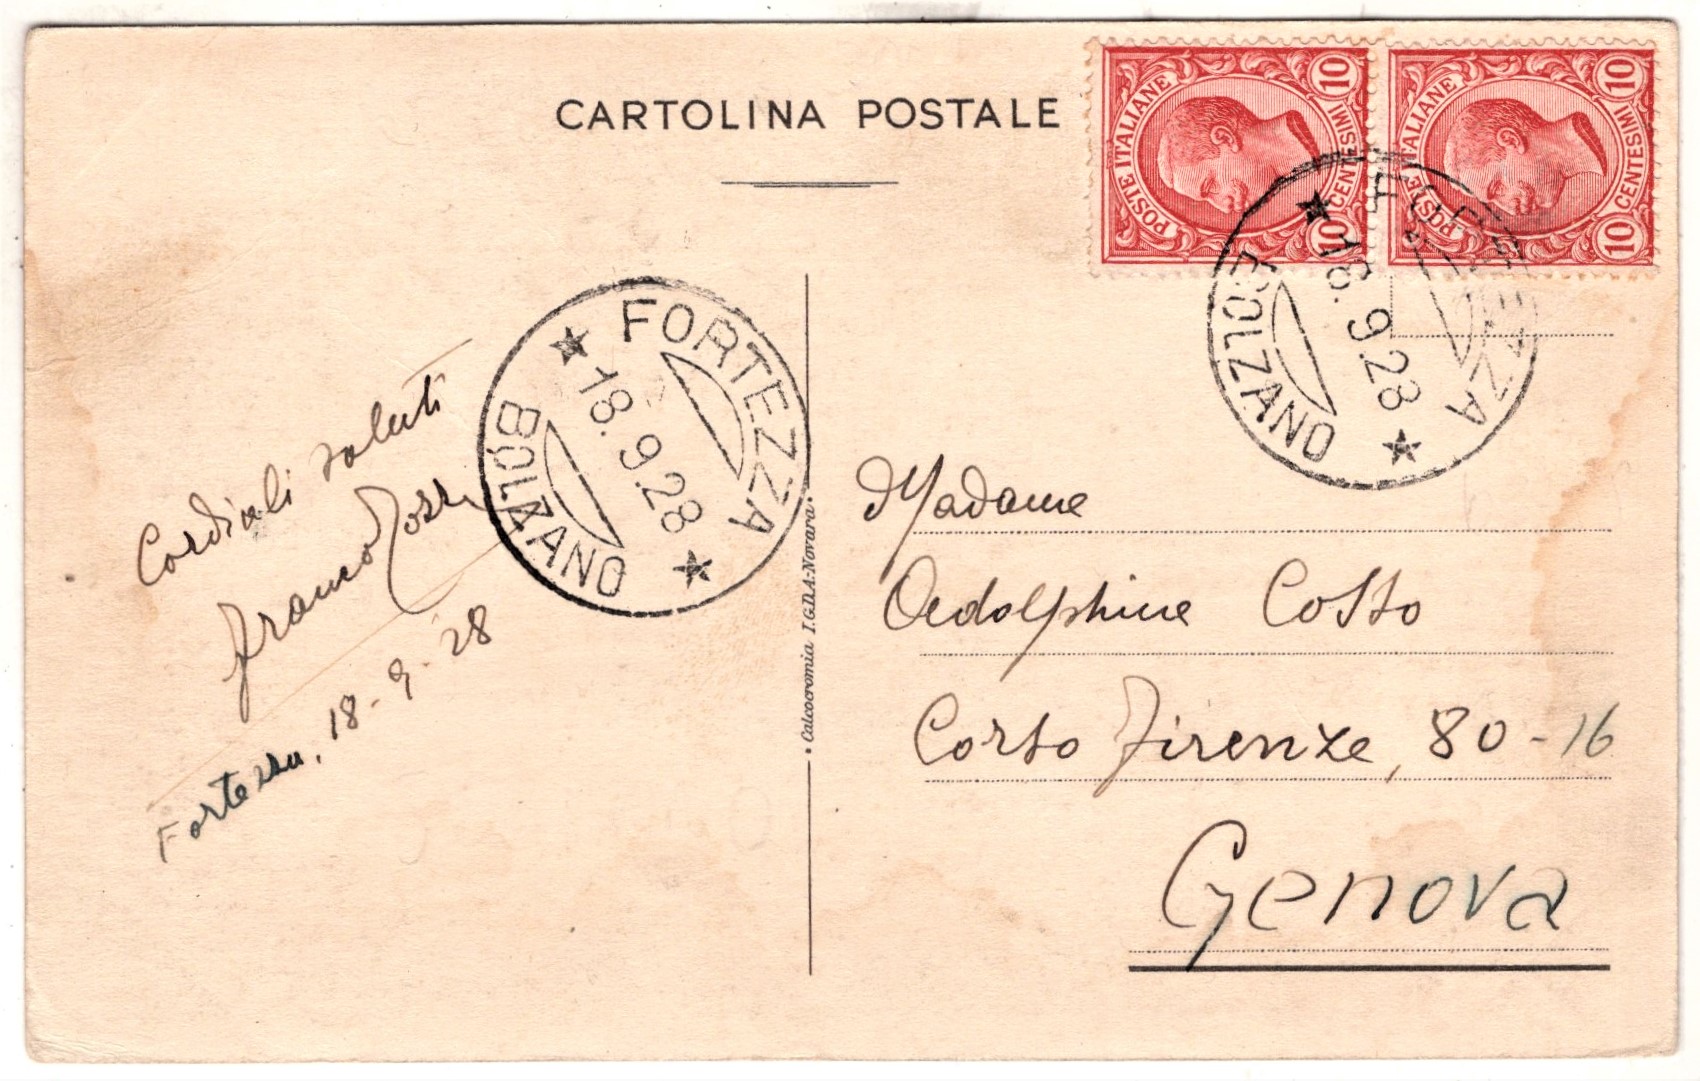 CARTOLINA POSTALE
POSTE ITALIANE
10 CENTESIMI 10
POSTE ITALIANE
10 CENTESIMI 10
FORTEZZA
18.9.28
BOLZANO
FORTEZZA
18.9.28
BOLZANO
Cordiali saluti
Franco Rossi
Fortezza, 18-9-28
• Calcocromia I.G.D.A.-Novara •
Madame
Adolphine Costo
Corso Firenze, 80-16
Genova